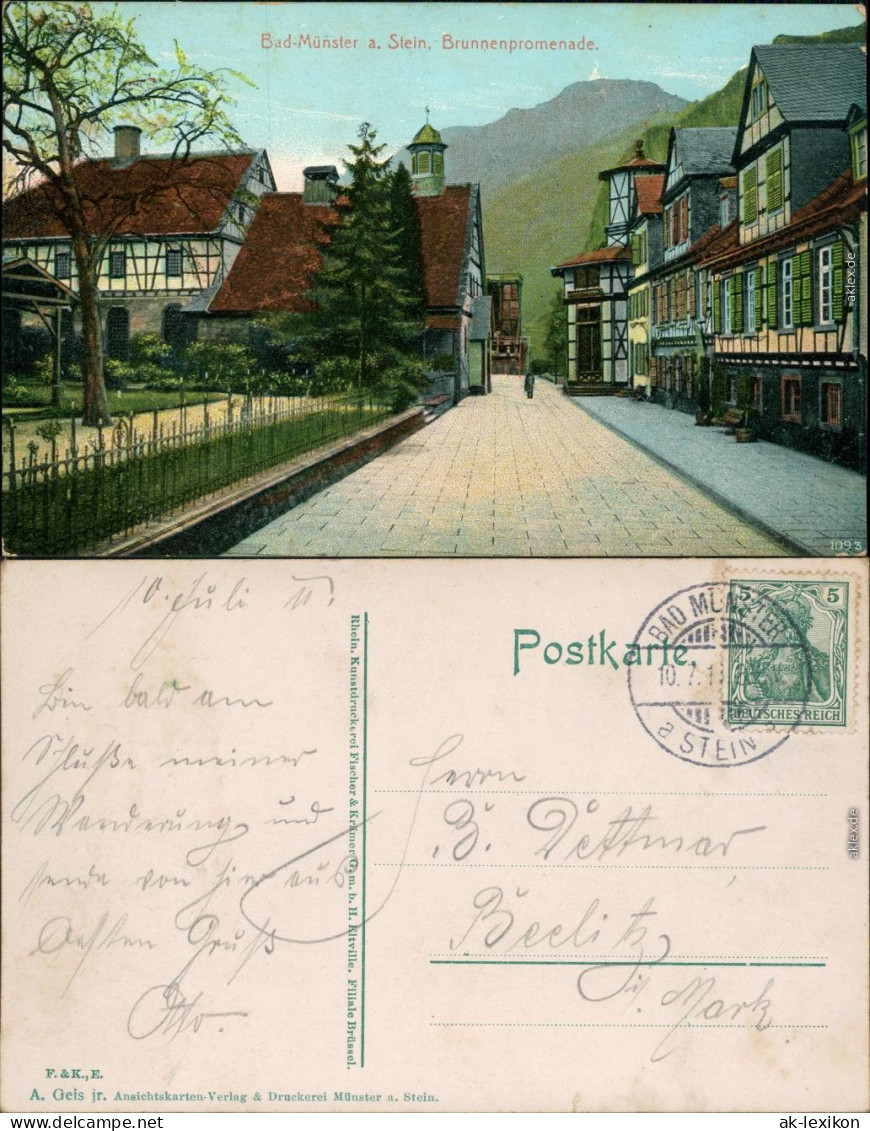 Bad-Münster a. Stein, Brunnenpromenade.
1093
10. Juli 11.
Bin bald am
Schluße meiner
Wanderung und
sende von hier aus
Besten Gruß
Otto.
Rhein. Kunstdruckerei Fischer & Krämer G. m. b. H. Eltville. Filiale Brüssel.
F. & K., E.
A. Geis jr. Ansichtskarten-Verlag & Druckerei Münster a. Stein.
Postkarte.
BAD MÜNSTER
10.7.1
a STEIN
5 5
DEUTSCHES REICH
Herrn
B. Dettmar
Beelitz
i. Mark
aklex.de
aklex.de
ak-lexikon